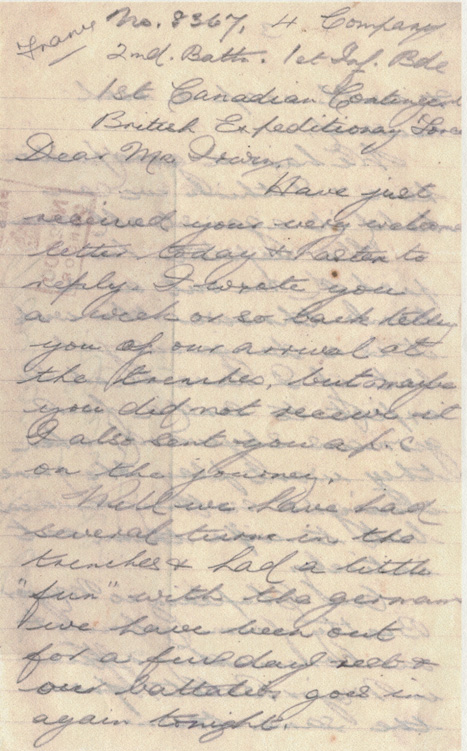 France
No. 8367, 4. Company
2nd. Battn. 1st Inf. Bde
1st Canadian Contingent
British Expeditionary Force
Dear Mr Irwin,
Have just
received your very welcome
letter today & hasten to
reply. I wrote you
a week or so back telling
you of our arrival at
the trenches, but maybe
you did not receive it
I also sent you a p.c
on the journey.
Well we have had
several turns in the
trenches & had a little
"fun" with the germans
we have been out
for a few days rest &
our battalion goes in
again tonight.